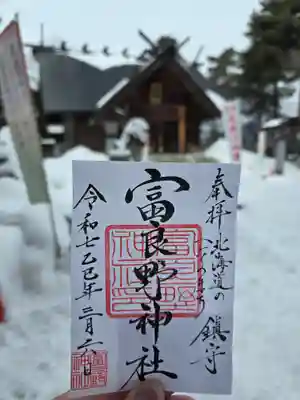 奉拝
北海道の
へそのまち
鎮守
富良野神社
令和七乙巳年三月六日